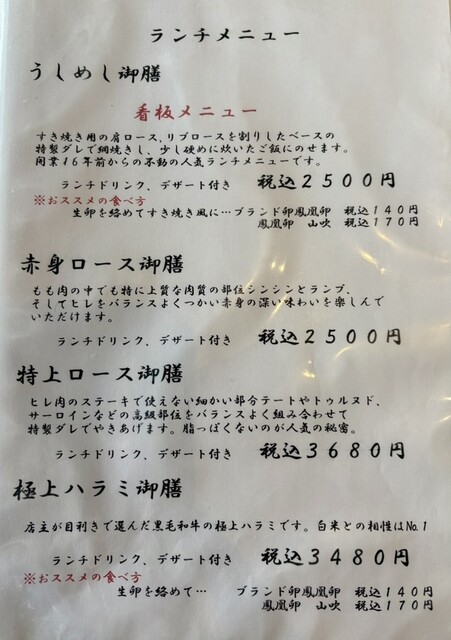 ランチメニュー
うしめし御膳
看板メニュー
すき焼き用の肩ロース,リブロースを割りしたベースの
特製ダレで網焼きし、少し硬めに炊いたご飯にのせます。
開業16年前からの不動の人気ランチメニューです。
ランチドリンク、デザート付き 税込2500円
※おススメの食べ方
生卵を絡めてすき焼き風に…ブランド卵鳳凰卵 税込140円
鳳凰卵 山吹 税込170円
赤身ロース御膳
もも肉の中でも特に上質な肉質の部位シンシンとランプ、
そしてヒレをバランスよくつかい赤身の深い味わいを楽しんで
いただけます。
ランチドリンク、デザート付き 税込2500円
特上ロース御膳
ヒレ肉のステーキで使えない細かい部分テートやトゥルヌド、
サーロインなどの高級部位をバランスよく組み合わせて
特製ダレでやきあげます。脂っぽくないのが人気の秘密。
ランチドリンク、デザート付き 税込3680円
極上ハラミ御膳
店主が目利きで選んだ黒毛和牛の極上ハラミです。白米との相性はNo.1
ランチドリンク、デザート付き 税込3480円
※おススメの食べ方
生卵を絡めて… ブランド卵鳳凰卵 税込140円
鳳凰卵 山吹 税込170円